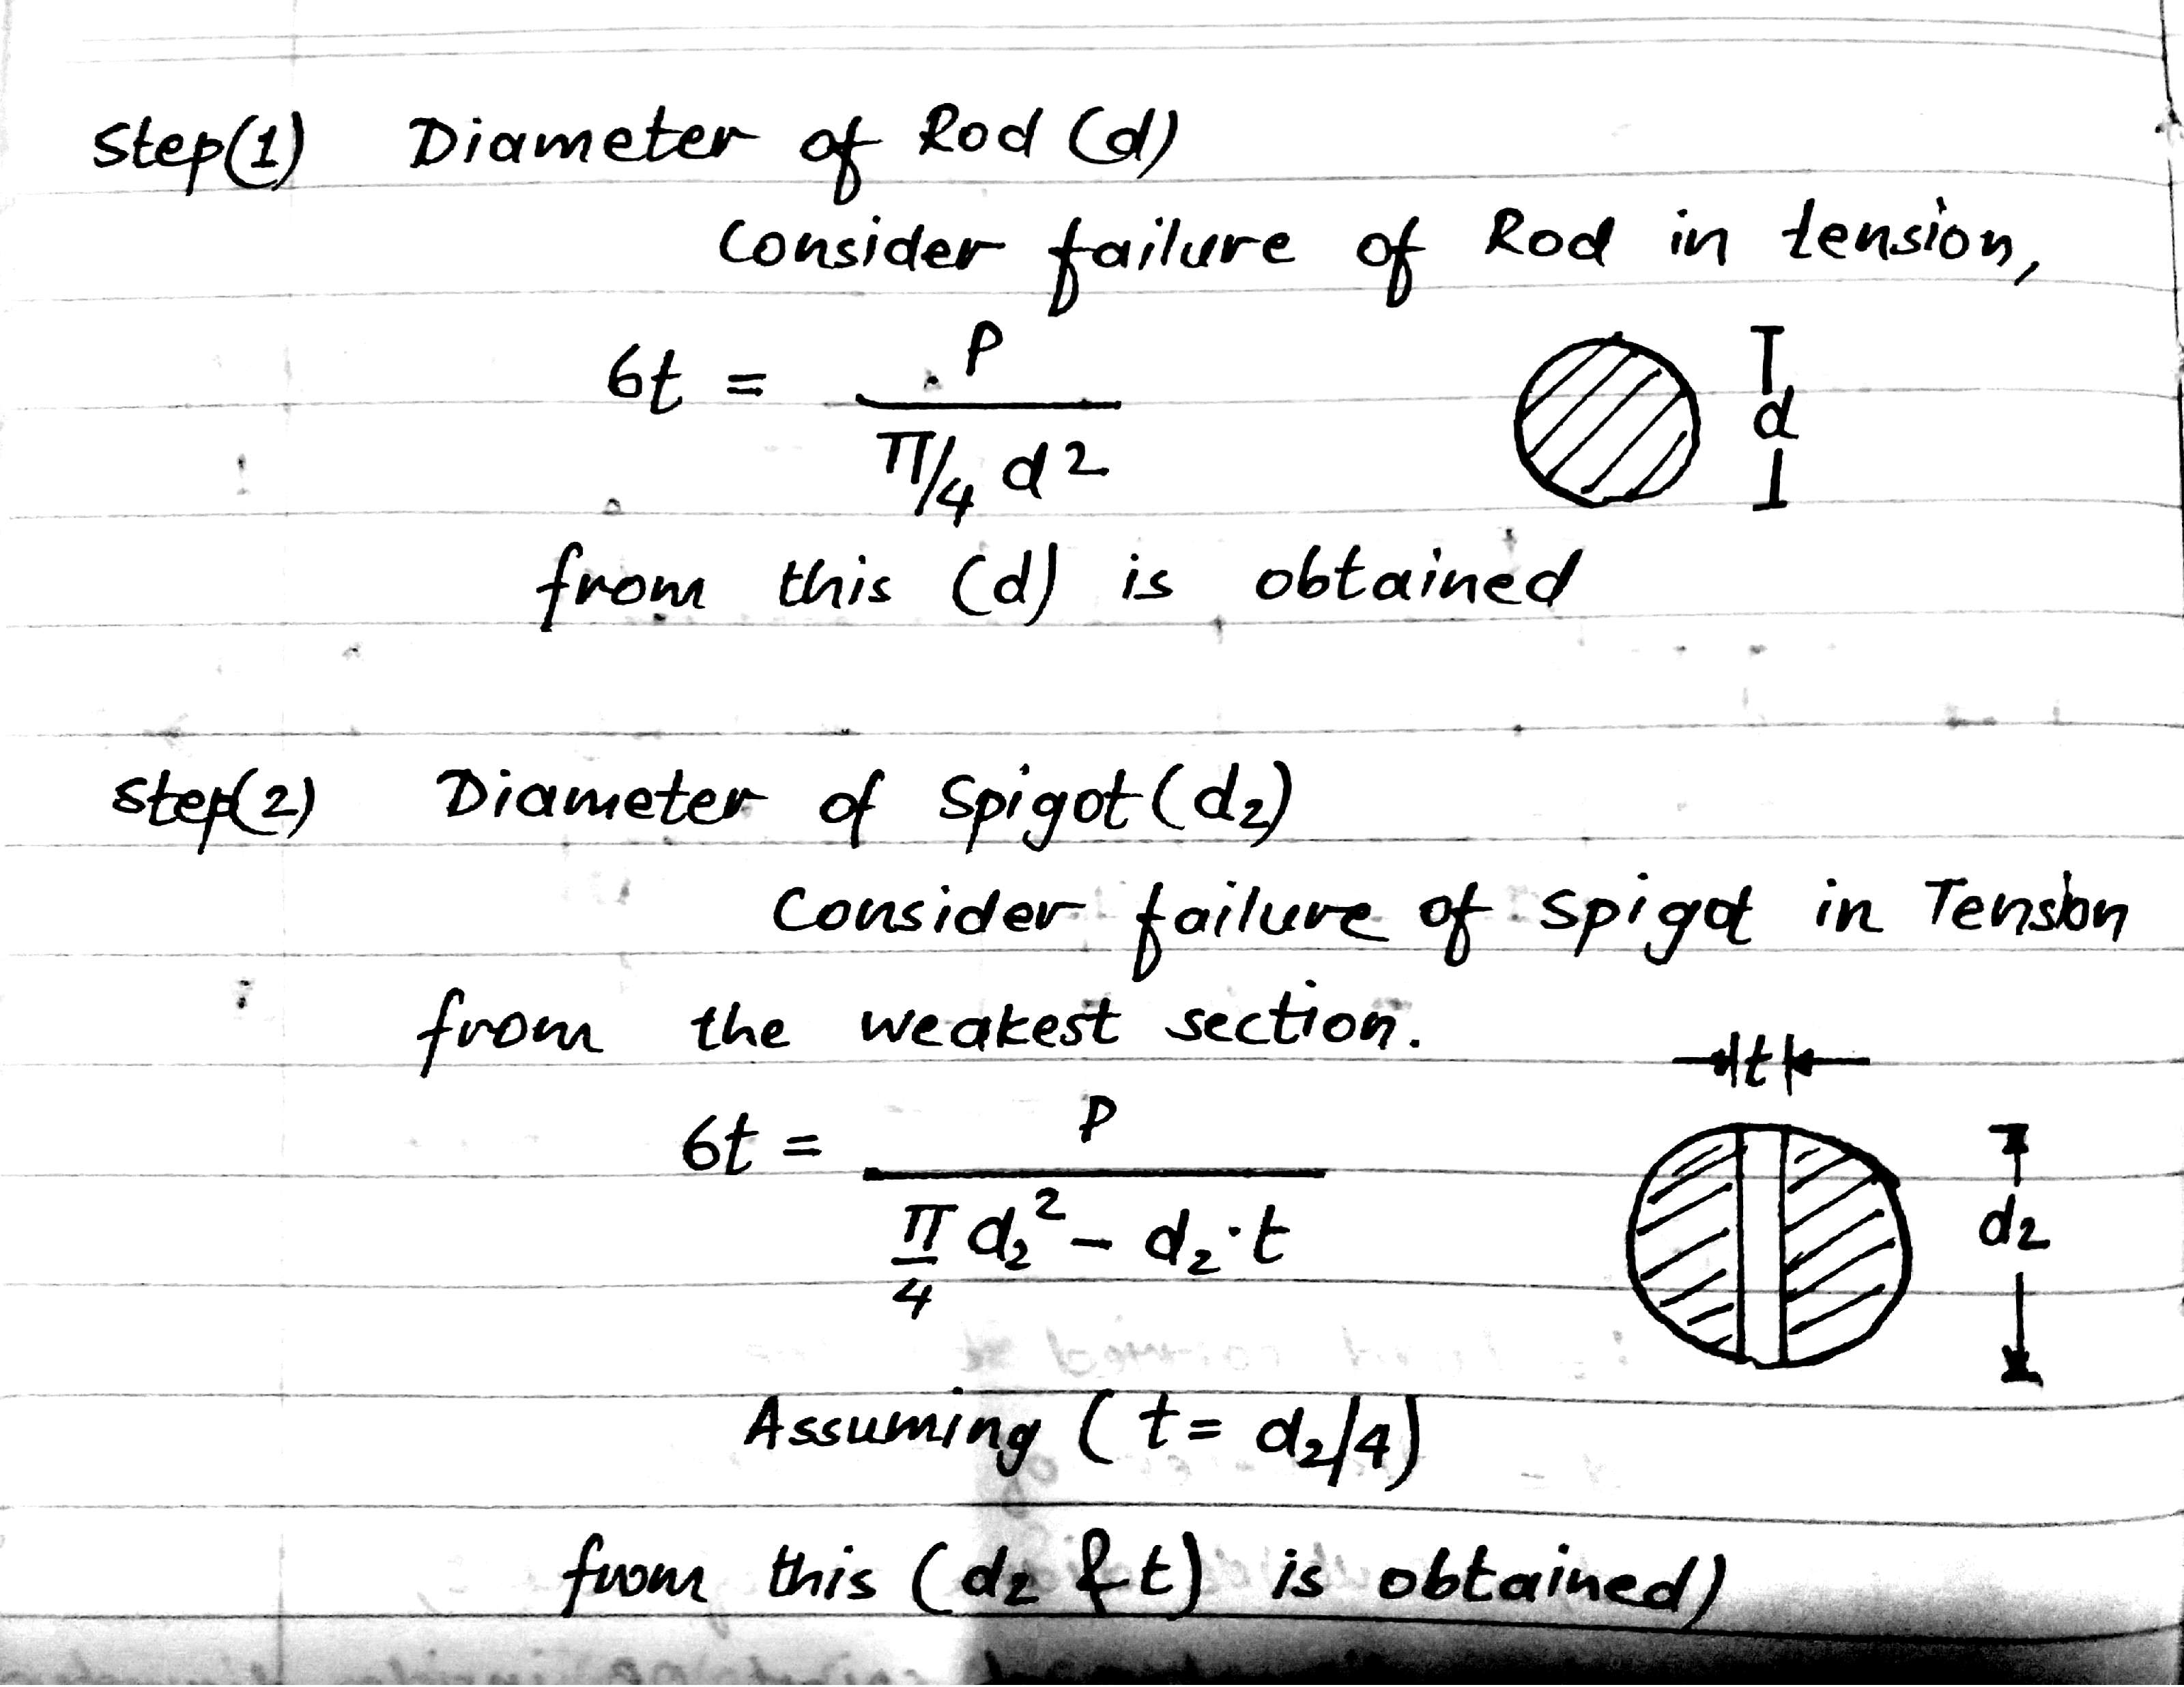 Step(1) Diameter of Rod (d)
Consider failure of Rod in tension,
6t = P
π/4 d2
d
from this (d) is obtained
Step(2) Diameter of Spigot (d2)
Consider failure of spigot in Tension
from the weakest section.
t
6t = P
π/4 d2² - d2·t
d2
Assuming (t = d2/4)
from this (d2 & t) is obtained)